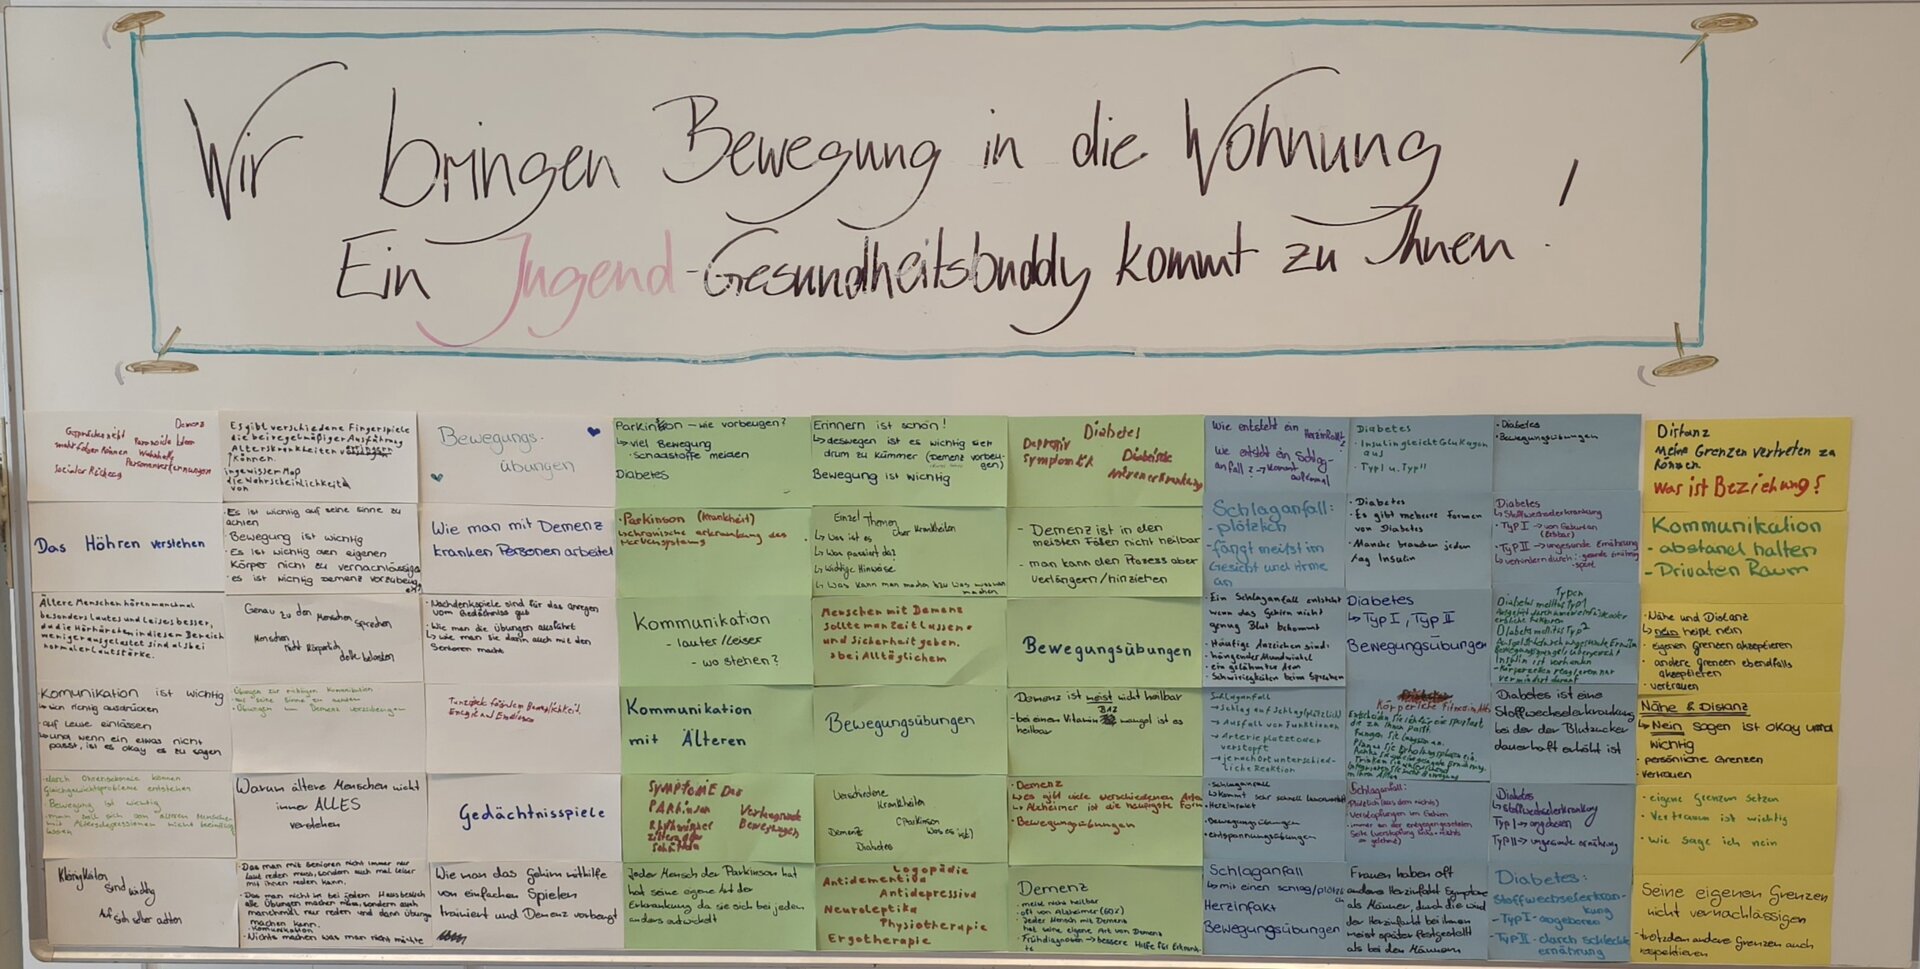 Wir bringen Bewegung in die Wohnung
Ein Jugend-Gesundheitsbuddy kommt zu Ihnen!
Demenz
Paranoide Ideen
Wahnhafte
Personenverkennungen
sozialer Rückzug
Es gibt verschiedene Fingerspiele
die bei regelmäßiger Ausführung
Alterskrankheiten
können.
die Wahrscheinlichkeit
von
Bewegungs-
übungen
Parkinson - wie vorbeugen?
↳ viel Bewegung
Diabetes
Erinnern ist schön!
↳ deswegen ist es wichtig sich
drum zu kümmer (Dement vorbeu-
gen)
Bewegung ist wichtig
Diabetes
Depressiv
Symptomatik
Diabetische
Wie entsteht ein Herzinfakt?
Wie entsteht ein Schlag-
anfall? → kommt
Diabetes
· Insulin gleicht Glukagon
aus
· Typ I u. Typ II
· Diabetes
· Bewegungsübungen
Distanz
Meine Grenzen vertreten zu
können.
Was ist Beziehung?
Das Höhren verstehen
· Es ist wichtig auf seine Sinne zu
achten
· Bewegung ist wichtig
· Es ist wichtig den eigenen
Körper nicht zu vernachlässigen
· es ist wichtig Demenz vorzubeug
en
Wie man mit Demenz
kranken Personen arbeitet
· Parkinson (Krankheit)
↳ chronische erkrankung des
Nervensystems
Einzel Themen
über Krankheiten
↳ Was ist es
↳ Was passiert da?
↳ wichtige Hinweise
↳ Was kann man machen bzw was
machen
- Demenz ist in den
meisten Fällen nicht heilbar
- man kann den Prozess aber
verlängern/hinziehen
Schlaganfall:
- plötzlich
- fängt meißt im
Gesicht und Arme
an
· Diabetes
· Es gibt mehrere Formen
von Diabetes
· Manche brauchen jeden
Tag Insulin
Diabetes
↳ Stoffwechselerkrankung
· Typ I → von Geburt an
· Typ II → ungesunde Ernährung
Kommunikation
- abstand halten
- Privaten Raum
Ältere Menschen hören manchmal
besonders lautes und leises besser,
da die Hörhärchen in diesem Bereich
weniger ausgelastet sind als bei
normaler Lautstärke.
Genau zu den Menschen sprechen
Menschen
nicht körperlich
doll belasten
· Nachdenkspiele sind für das anregen
vom Gedächtniss gut
· Wie man die Übungen ausführt
↳ wie man sie dann auch mit den
Senioren macht
Kommunikation
- lauter/leiser
- wo stehen?
Menschen mit Demenz
sollte man Zeit lassen
und Sicherheit geben.
→ bei Alltäglichem
Bewegungsübungen
· Ein Schlaganfall entsteht
wenn das Gehirn nicht
genug Blut bekommt
· Häufige Anzeichen sind:
· hängender Mundwinkel
· ein gelähmter Arm
· Schwierigkeiten beim Sprechen
Diabetes
↳ Typ I, Typ II
Bewegungsübungen
Typen
Diabetes mellitus Typ 1
Diabetes mellitus Typ 2
Insulin ist vorhanden
· Nähe und Distanz
↳ nein heißt nein
· eigenen Grenzen akzeptieren
· andere Grenzen ebenfalls
akzeptieren
· vertrauen
Komunikation ist wichtig
↳ sich richtig ausdrücken
· auf Leute einlassen
↳ und wenn ein etwas nicht
passt, ist es okay es zu sagen
· Übungen zur richtigen Komunikation
· Übungen um Demenz vorzubeugen
Kommunikation
mit Älteren
Bewegungsübungen
Demenz ist meist nicht heilbar
B12
- bei einem Vitamin mangel ist es
heilbar
Schlaganfall
→ Schlag auf Schlag (plötzlich)
→ Ausfall von Funktionen
→ Arterie platzt oder
verstopft
→ je nach Ort unterschied-
liche Reaktion
Körperliche Fitness
Diabetes ist eine
Stoffwechselerkrankung
bei der der Blutzucker
dauerhaft erhöht ist
Nähe & Distanz
↳ Nein sagen ist okay und
wichtig
· persönliche Grenzen
· vertrauen
Gleichgewichtsprobleme entstehen
· Bewegung ist wichtig
Warum ältere Menschen nicht
immer ALLES
verstehen
Gedächtnisspiele
Symptome Der
Parkinson
Verlangsamte
Bewegungen
Verschiedene
Krankheiten
(Parkinson
Demenz
Was es ist)
Diabetes
· Demenz
↳ es gibt viele verschiedenen Arten
↳ Alzheimer ist die häufigste Form
· Bewegungsübungen
· Schlaganfall
↳ kommt sehr schnell
· Herzinfakt
· Bewegungsübungen
· entspannungsübungen
Schlaganfall:
· Plötzlich (aus dem nichts)
· Verstopfungen im Gehirn
· immer an der entgegengesetzten
Seite
Diabetes
↳ stoffwechselerkrankung
Typ I → angeboren
Typ II → ungesunde ernährung
· eigene Grenzen setzen
· Vertrauen ist wichtig
· wie sage ich nein
Kleinigkeiten
sind wichtig
Auf sich selber achten
· Das man mit Senioren nicht immer nur
laut reden muss, sondern auch mal leiser
mit ihnen reden kann.
· Das man nicht in bei jedem Hausbesuch
alle Übungen machen muss, sondern auch
manchmal nur reden und dann Übungen
machen kann.
· Kommunikation
· Nichts machen was man nicht möchte
Wie man das Gehirn mithilfe
von einfachen Spielen
trainiert und Demenz vorbeugt
Jeder Mensch der Parkinson hat
hat seine eigene Art der
Erkrankung da sie sich bei jeden
anders entwickelt
Logopädie
Antidementiva
Antidepressiva
Neuroleptika
Physiotherapie
Ergotherapie
Demenz
· meist nicht heilbar
· oft von Alzheimer (60%)
· Jeder Mensch mit Demenz
hat seine eigene Art von Demenz
· Frühdiagnosen → bessere Hilfe für Erkrank-
te
Schlaganfall
↳ mit einen schlag/plötzli
ch
Herzinfakt
Bewegungsübungen
Frauen haben oft
andere Herzinfakt Symptome
als Männer, durch die wird
der Herzinfakt bei ihnen
meist später festgestellt
als bei den Männern
Diabetes:
Stoffwechselerkran-
kung
- Typ I - angeboren
- Typ II - durch schlechte
ernährung
Seine eigenen Grenzen
nicht vernachlässigen
- trotzdem andere Grenzen auch
respektieren